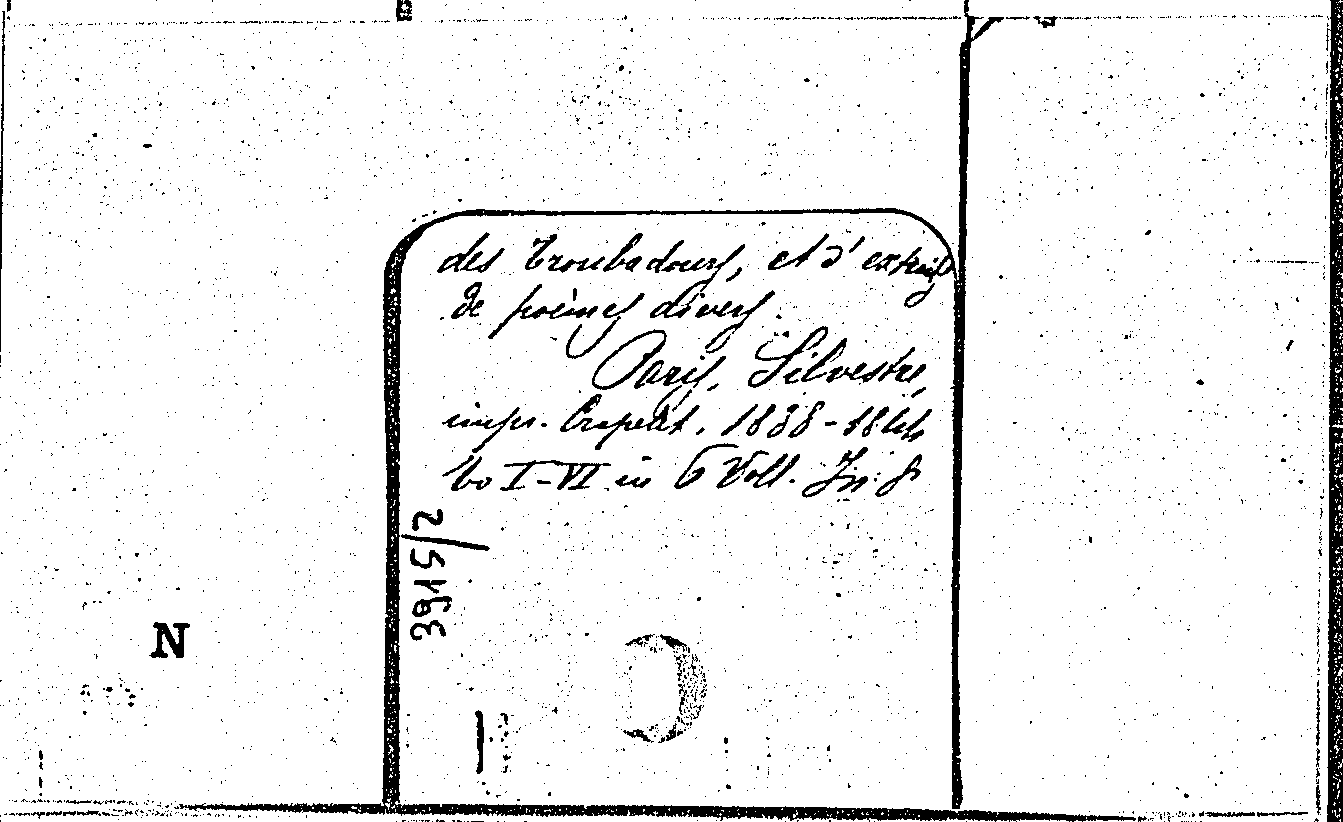 des Troubadours, et d'extraits
de poèmes divers.
Paris, Silvestre,
impr. Crapelet, 1838-1844
to I-VI in 6 Voll. In 8°
3915/2
N